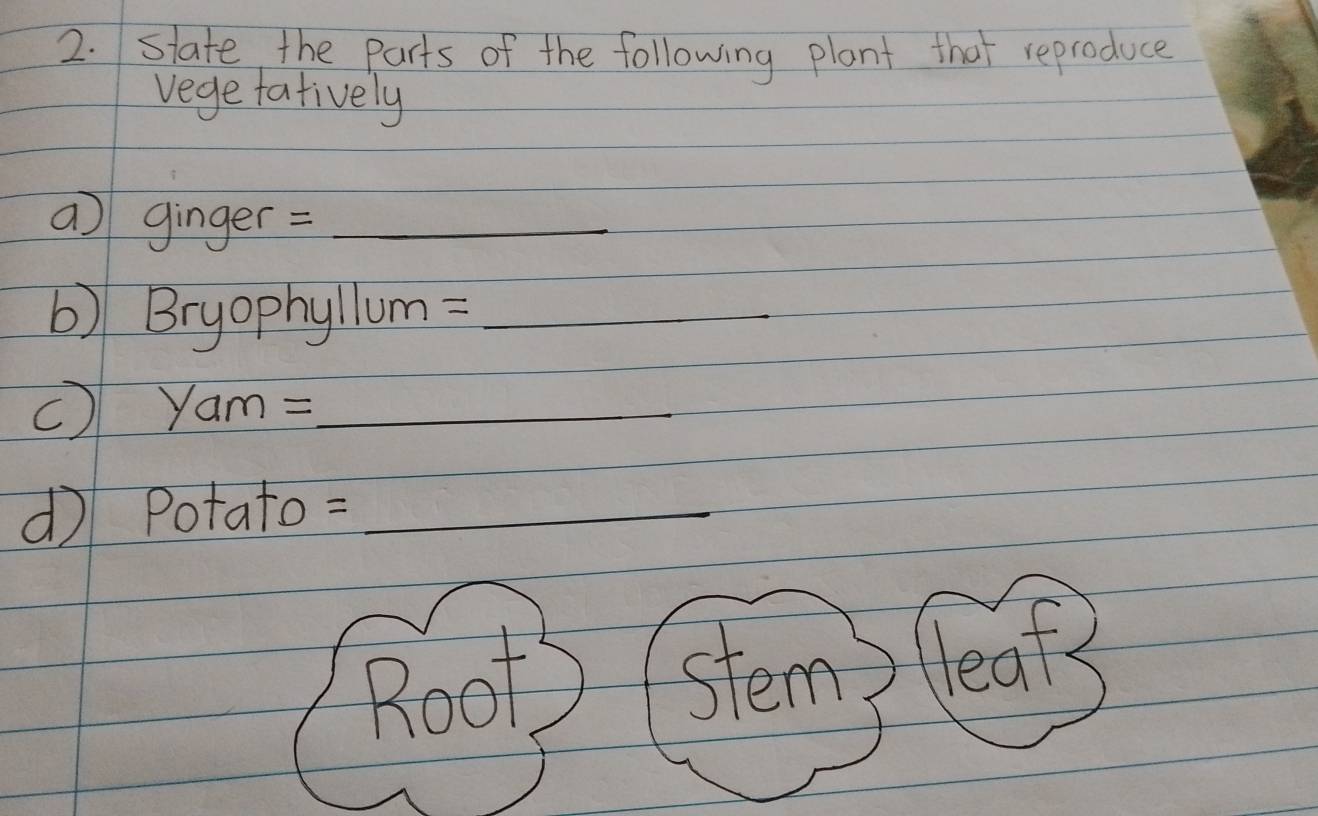 2. State the parts of the following plant that reproduce
vegetatively
a) ginger = ___________
b) Bryophyllum = ___________
c) Yam = ___________
d) Potato = ___________
Root stem leaf